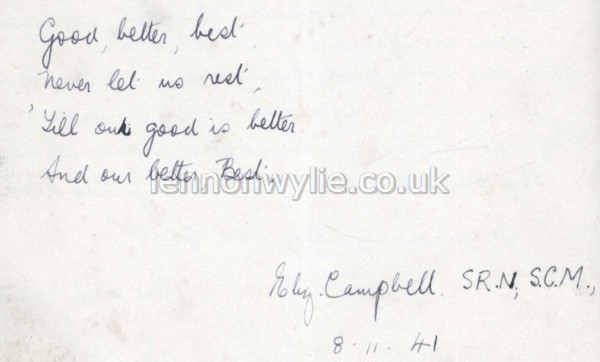 Good, better, best.
Never let us rest,
'Till our good is better
And our better Best.
lennonwylie.co.uk
Eliz. Campbell. S.R.N, S.C.M.,
8.11.41